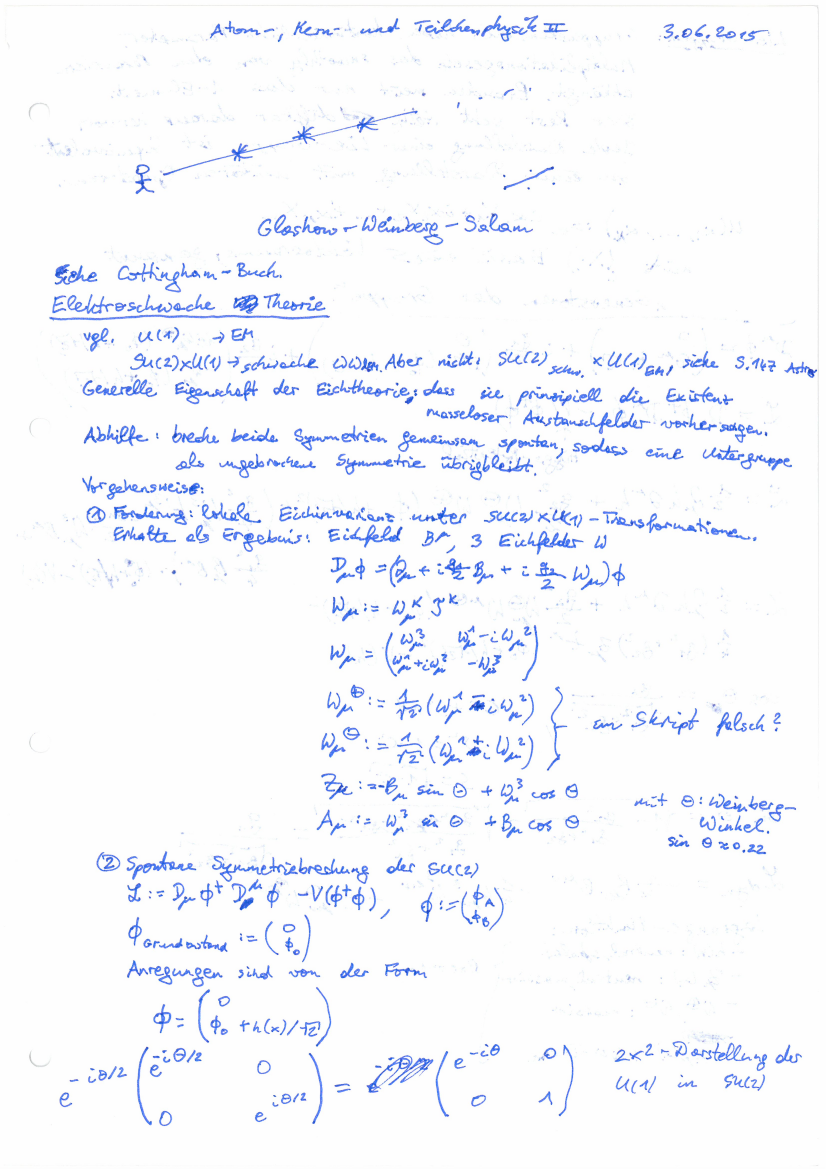 Atom-, Kern- und Teilchenphysik II 3.06.2015
Glashow - Weinberg - Salam
Siehe Cottingham-Buch.
Elektroschwache Theorie
vgl. U(1) → EM
SU(2)×U(1) → schwache WW. Aber nicht: SU(2)schw. × U(1)EM, siehe S.147
Generelle Eigenschaft der Eichtheorie: dass sie prinzipiell die Existenz
masseloser Austauschfelder vorhersagen.
Abhilfe: breche beide Symmetrien gemeinsam spontan, sodass eine Untergruppe
als ungebrochene Symmetrie übrigbleibt.
Vorgehensweise:
① Forderung: lokale Eichinvarianz unter SU(2)×U(1)-Transformationen.
Erhalte als Ergebnis: Eichfeld B^μ, 3 Eichfelder W
D_μ ϕ = (∂_μ + i g₁/2 B_μ + i g₂/2 W_μ)ϕ
W_μ := W_μ^K τ^K
W_μ = (W_μ^3 W_μ^1 - iW_μ^2
W_μ^1 + iW_μ^2 -W_μ^3)
W_μ^⊕ := 1/√2 (W_μ^1 - iW_μ^2)
im Skript falsch?
W_μ^⊖ := 1/√2 (W_μ^1 + iW_μ^2)
Z_μ := -B_μ sin Θ + W_μ^3 cos Θ
A_μ := W_μ^3 sin Θ + B_μ cos Θ
mit Θ: Weinberg-
Winkel.
sin Θ ≈ 0.22
② Spontane Symmetriebrechung der SU(2)
ℒ := D_μ ϕ^† D^μ ϕ - V(ϕ^†ϕ), ϕ := (ϕ_A
ϕ_B)
ϕ_Grundzustand := (0
ϕ_0)
Anregungen sind von der Form
ϕ = (0
ϕ_0 + h(x)/√2)
e^{-iθ/2} (e^{-iθ/2} 0
0 e^{iθ/2}) = (e^{-iθ} 0
0 1)
2×2-Darstellung der
U(1) in SU(2)